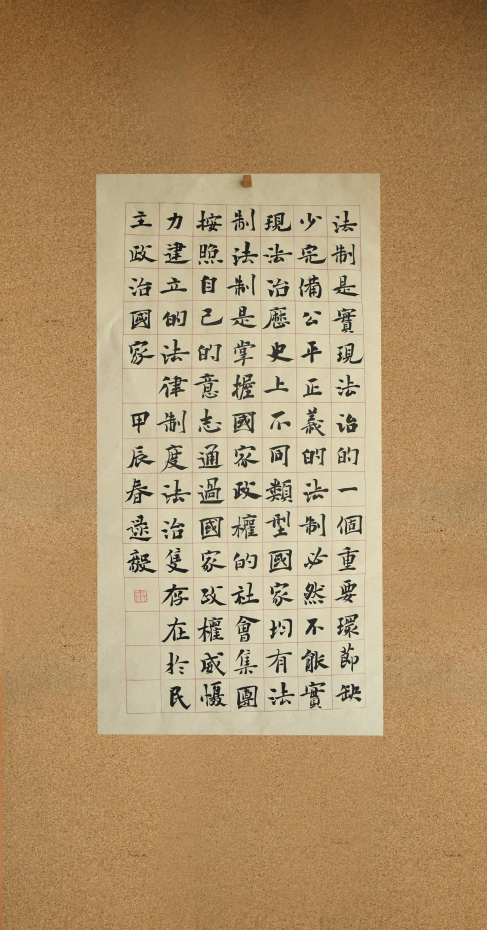 法制是實現法治的一個重要環節缺
少完備公平正義的法制必然不能實
現法治歷史上不同類型國家均有法
制法制是掌握國家政權的社會集團
按照自己的意志通過國家政權威懾
力建立的法律制度法治隻存在於民
主政治國家 甲辰春遠毅